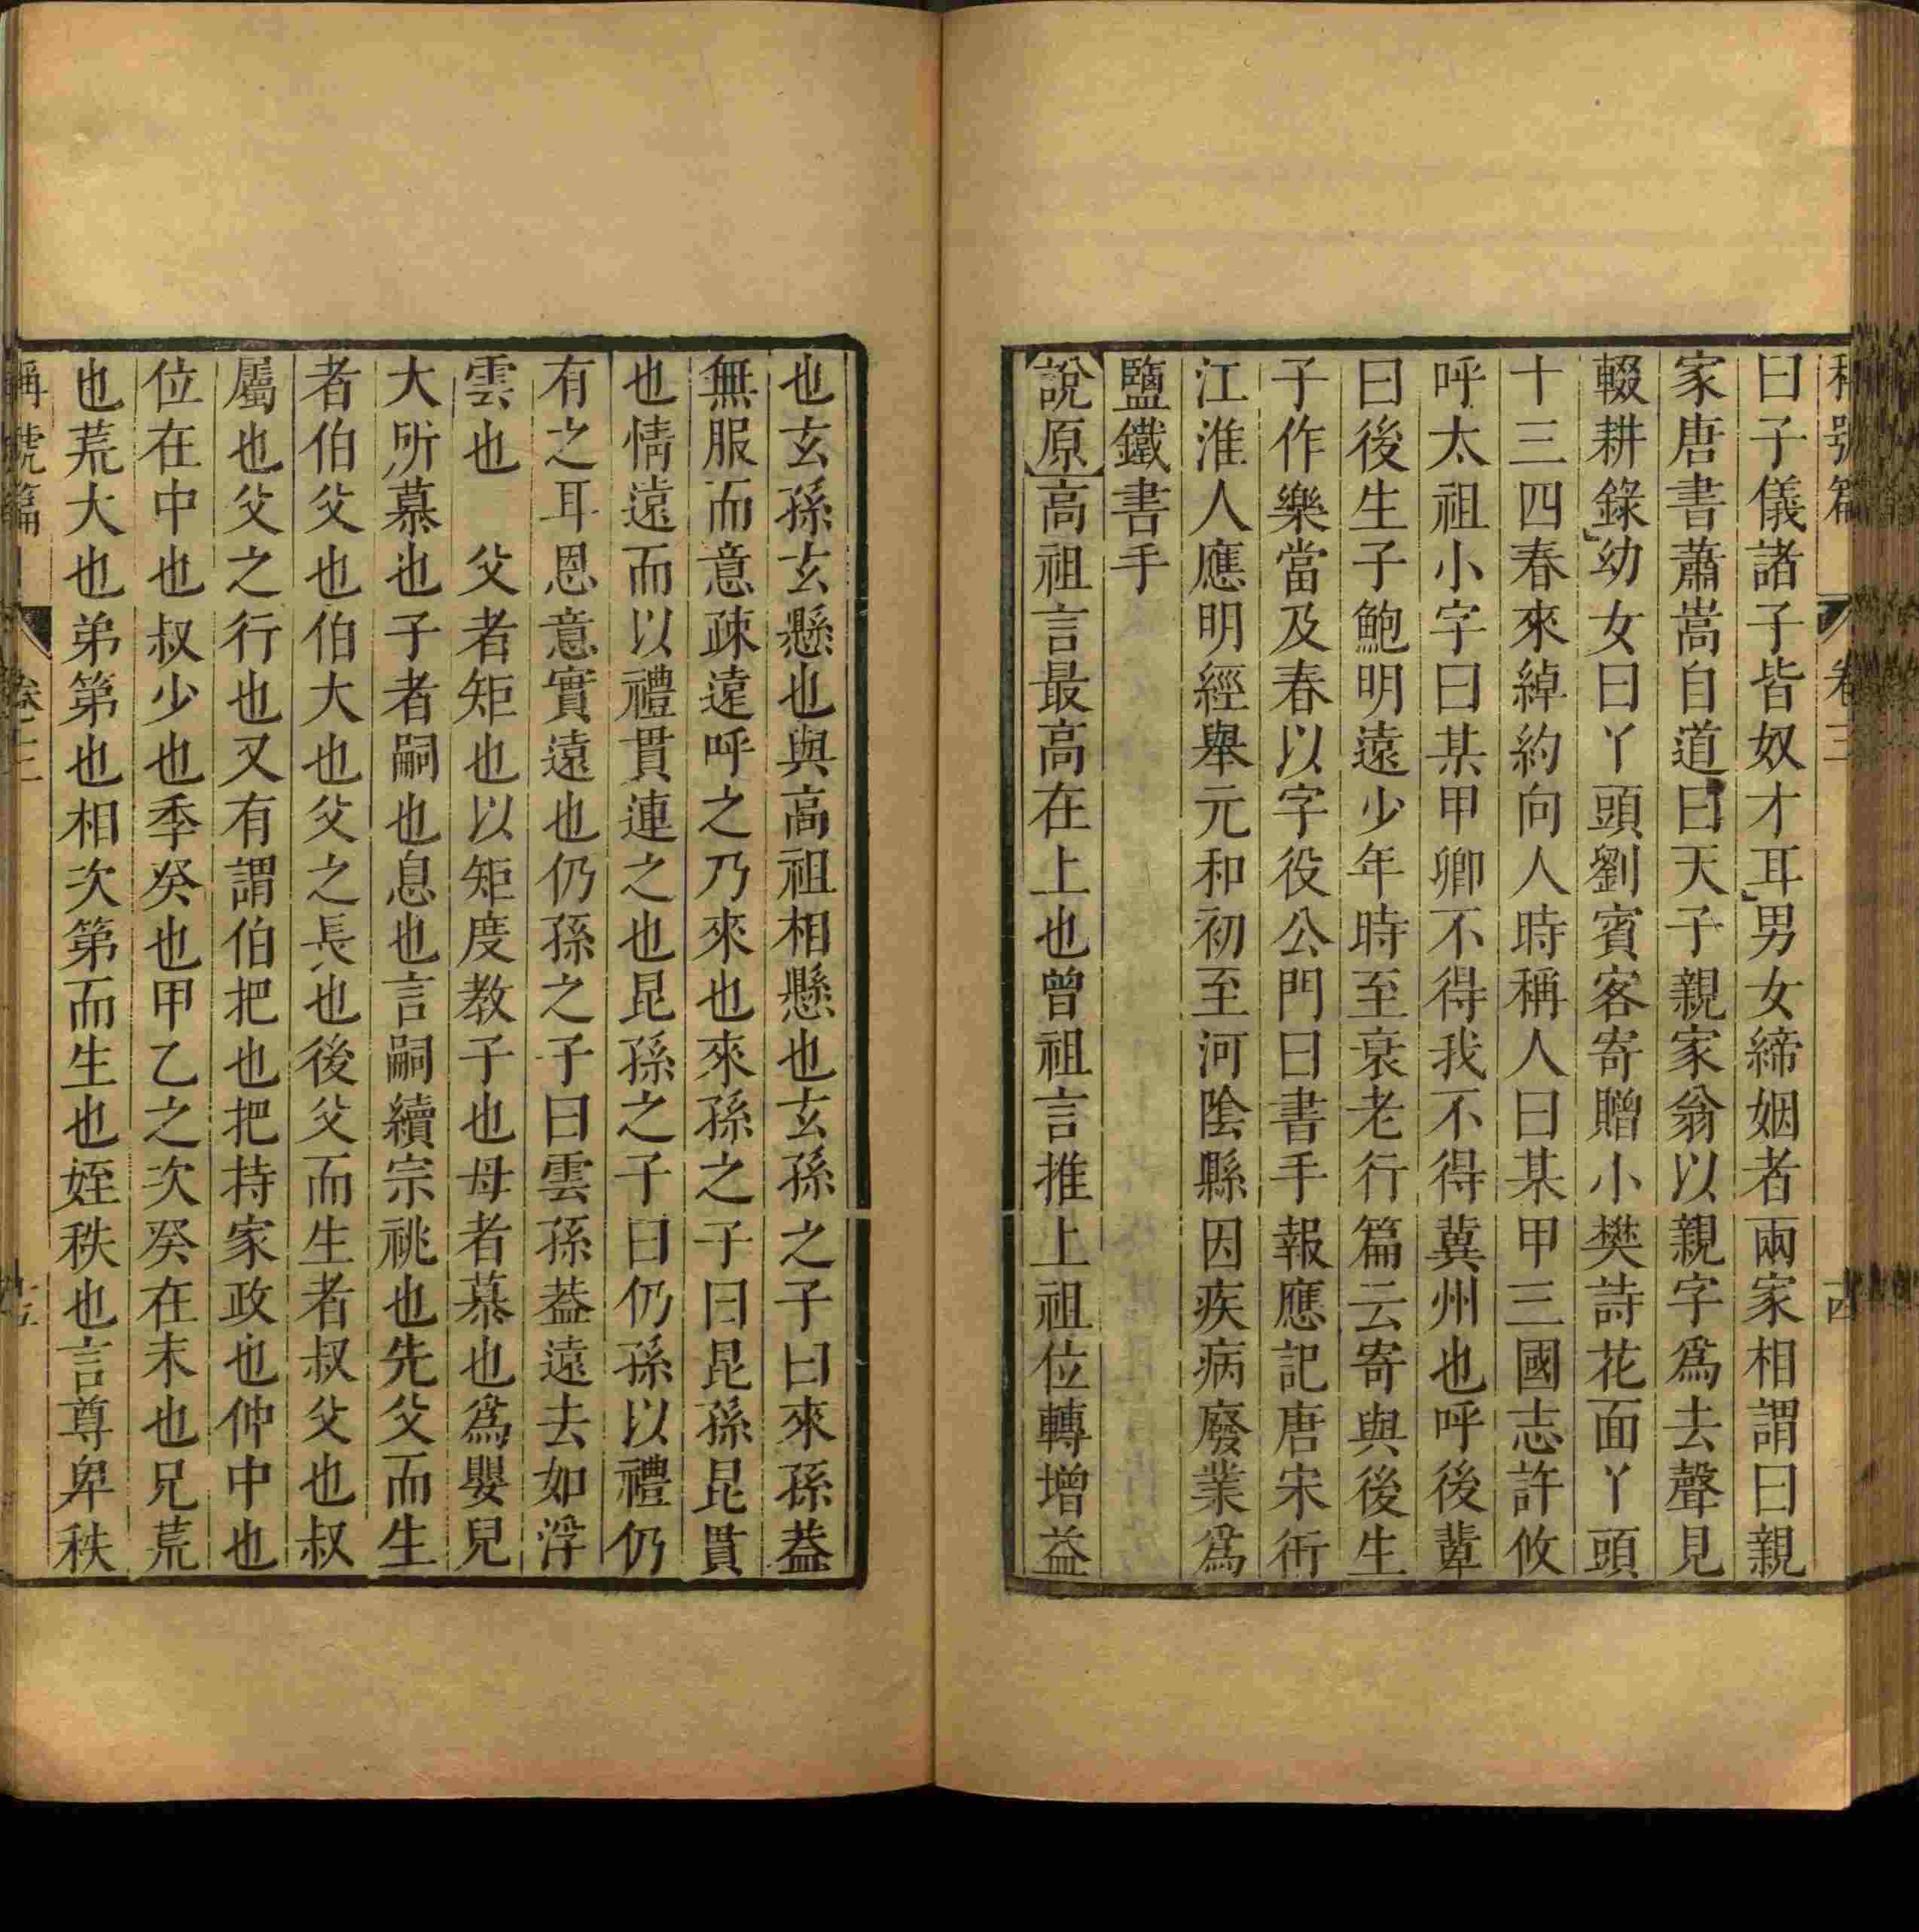 稱號篇 卷三 十四
曰子儀諸子皆奴才耳男女締姻者兩家相謂曰親
家唐書蕭嵩自道曰天子親家翁以親字為去聲見
輟耕錄幼女曰丫頭劉賓客寄贈小樊詩花面丫頭
十三四春來綽約向人時稱人曰某甲三國志許攸
呼太祖小字曰某甲卿不得我不得冀州也呼後輩
曰後生子鮑明遠少年時至衰老行篇云寄與後生
子作樂當及春以字役公門曰書手報應記唐宋衎
江淮人應明經舉元和初至河陰縣因疾病廢業爲
鹽鐵書手
說原高祖言最高在上也曾祖言推上祖位轉增益
也玄孫玄懸也與高祖相懸也玄孫之子曰來孫葢
無服而意疎遠呼之乃來也來孫之子曰昆孫昆貫
也情遠而以禮貫連之也昆孫之子曰仍孫以禮仍
有之耳恩意實遠也仍孫之子曰雲孫葢遠去如浮
雲也　父者矩也以矩度教子也母者慕也爲嬰兒
大所慕也子者嗣也息也言嗣續宗祧也先父而生
者伯父也伯大也父之長也後父而生者叔父也叔
屬也父之行也又有謂伯把也把持家政也仲中也
位在中也叔少也季癸也甲乙之次癸在末也兄荒
也荒大也弟第也相次第而生也姪秩也言尊卑秩
稱號篇 卷三 十五